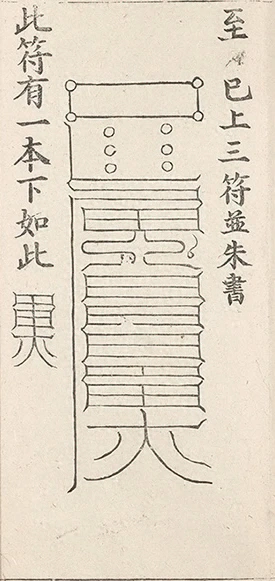 至
已上三符並朱書
此符有一本下如此